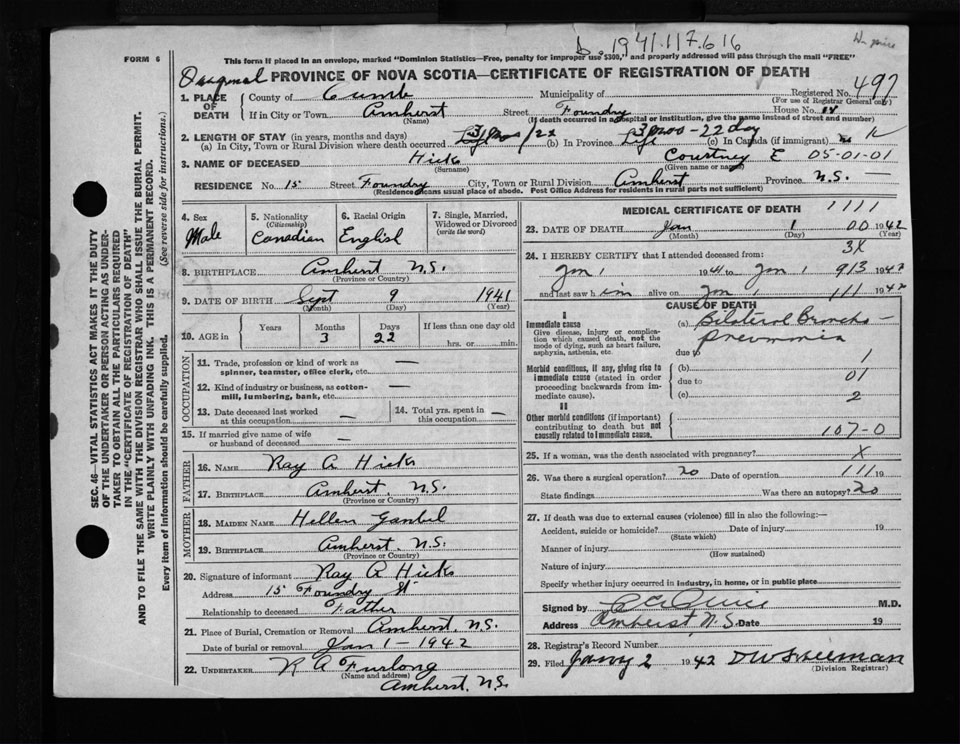 b. 1941.117.616
FORM 6
This form if placed in an envelope, marked "Dominion Statistics—Free, penalty for improper use $300," and properly addressed will pass through the mail "FREE"
Original PROVINCE OF NOVA SCOTIA—CERTIFICATE OF REGISTRATION OF DEATH
Registered No. 497
(For use of Registrar General only)
1. PLACE OF DEATH
County of Cumb Municipality of
If in City or Town Amherst Street Foundry House No.
(Name) (If death occurred in a hospital or institution, give the name instead of street and number)
2. LENGTH OF STAY (in years, months and days)
(a) In City, Town or Rural Division where death occurred Life (b) In Province Life 3 mos - 22 day (c) In Canada (if immigrant)
3. NAME OF DECEASED Hicks Courtney E 05-01-01
(Surname) (Given name or names)
RESIDENCE No. 15 Street Foundry City, Town or Rural Division Amherst Province N.S.
(Residence means usual place of abode. Post Office Address for residents in rural parts not sufficient)
4. Sex
Male
5. Nationality (Citizenship)
Canadian
6. Racial Origin
English
7. Single, Married, Widowed or Divorced (write the word)
8. BIRTHPLACE Amherst N.S.
(Province or Country)
9. DATE OF BIRTH Sept 9 1941
(Month) (Day) (Year)
10. AGE in
Years Months Days If less than one day old
3 22 hrs. or min.
OCCUPATION
11. Trade, profession or kind of work as spinner, teamster, office clerk, etc. —
12. Kind of industry or business, as cotton-mill, lumbering, bank, etc. —
13. Date deceased last worked at this occupation —
14. Total yrs. spent in this occupation —
15. If married give name of wife or husband of deceased —
FATHER
16. NAME Ray A Hicks
17. BIRTHPLACE Amherst, N.S.
(Province or Country)
MOTHER
18. MAIDEN NAME Hellen
19. BIRTHPLACE Amherst, N.S.
(Province or Country)
20. Signature of informant Ray A Hicks
Address 15 Foundry St
Relationship to deceased Father
21. Place of Burial, Cremation or Removal Amherst, N.S.
Date of burial or removal Jan 1 - 1942
22. UNDERTAKER R A Furlong
(Name and address)
Amherst, N.S.
MEDICAL CERTIFICATE OF DEATH 1111
23. DATE OF DEATH Jan 1 00 1942
(Month) (Day) (Year)
24. I HEREBY CERTIFY that I attended deceased from: 3X
Jan 1 1941 to Jan 1 913 1942
and last saw him alive on Jan 1 111 1942
CAUSE OF DEATH
I
Immediate cause
Give disease, injury or complication which caused death, not the mode of dying, such as heart failure, asphyxia, asthenia, etc.
(a) Bilateral Broncho-
pneumonia
due to
Morbid conditions, if any, giving rise to immediate cause (stated in order proceeding backwards from immediate cause).
(b) 1
due to 01
(c) 2
II
Other morbid conditions (if important) contributing to death but not causally related to immediate cause.
107-0
25. If a woman, was the death associated with pregnancy? X
26. Was there a surgical operation? no Date of operation 111 19
State findings Was there an autopsy? no
27. If death was due to external causes (violence) fill in also the following:—
Accident, suicide or homicide? Date of injury 19
(State which)
Manner of injury
(How sustained)
Nature of injury
Specify whether injury occurred in industry, in home, or in public place
Signed by M.D.
Address Amherst, N.S. Date 19
28. Registrar's Record Number
29. Filed Jany 2 1942
(Division Registrar)
SEC. 46—VITAL STATISTICS ACT MAKES IT THE DUTY
OF THE UNDERTAKER OR PERSON ACTING AS UNDER-
TAKER TO OBTAIN ALL THE PARTICULARS REQUIRED
IN THE "CERTIFICATE OF REGISTRATION OF DEATH"
AND TO FILE THE SAME WITH THE DIVISION REGISTRAR WHO SHALL ISSUE THE BURIAL PERMIT.
WRITE PLAINLY WITH UNFADING INK. THIS IS A PERMANENT RECORD.
Every item of information should be carefully supplied. (See reverse side for instructions.)